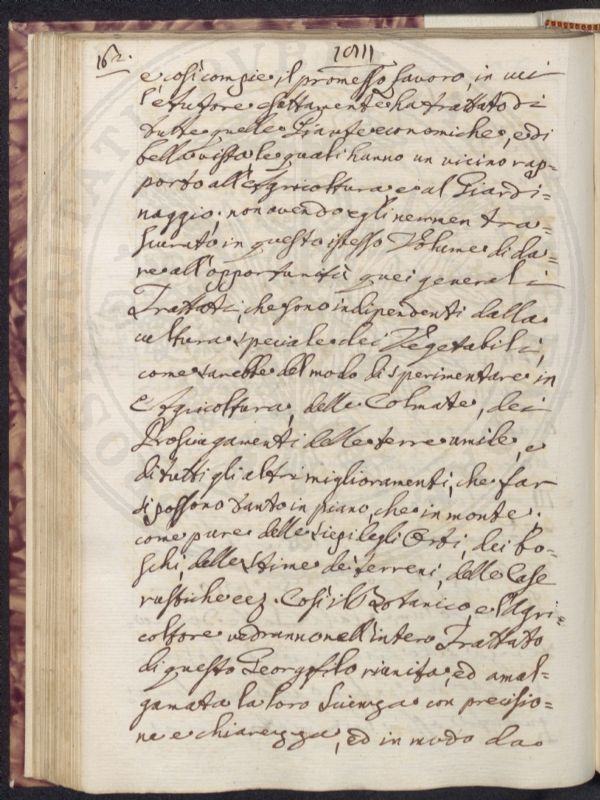 162.
1011
e così compie il promesso lavoro, in cui
l'Autore esattamente ha trattato di
tutte quelle Piante economiche, e di
bella vista le quali hanno un vicino rap=
porto all'Agricoltura e al Giardi=
naggio; non avendo egli nemmen tra=
scurato in questo istesso Volume di da=
re all'opportunità quei generali
Trattati, che sono indipendenti dalla
cultura speciale dei Vegetabili,
come sarebbe del modo di sperimentare in
Agricoltura, delle Colmate, dei
Prosciugamenti delle terre umide, e
di tutti gli altri miglioramenti, che far
si possono tanto in piano, che in monte.
come pure delle siepi degli Orti, dei bo=
schi, delle stime dei terreni, delle Case
rustiche ecc. Così il Botanico, e l'Agri=
coltore vedranno nell'intero Trattato
di questo Georgofilo riunita, ed amal=
gamata la loro Scienza con precisio=
ne e chiarezza, ed in modo da